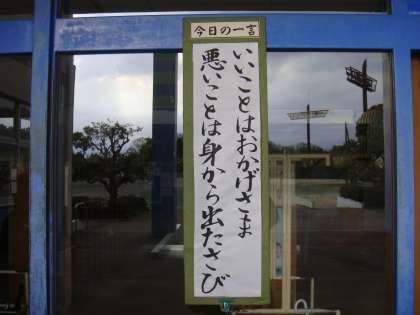 今日の一言
いいことはおかげさま
悪いことは身から出たさび